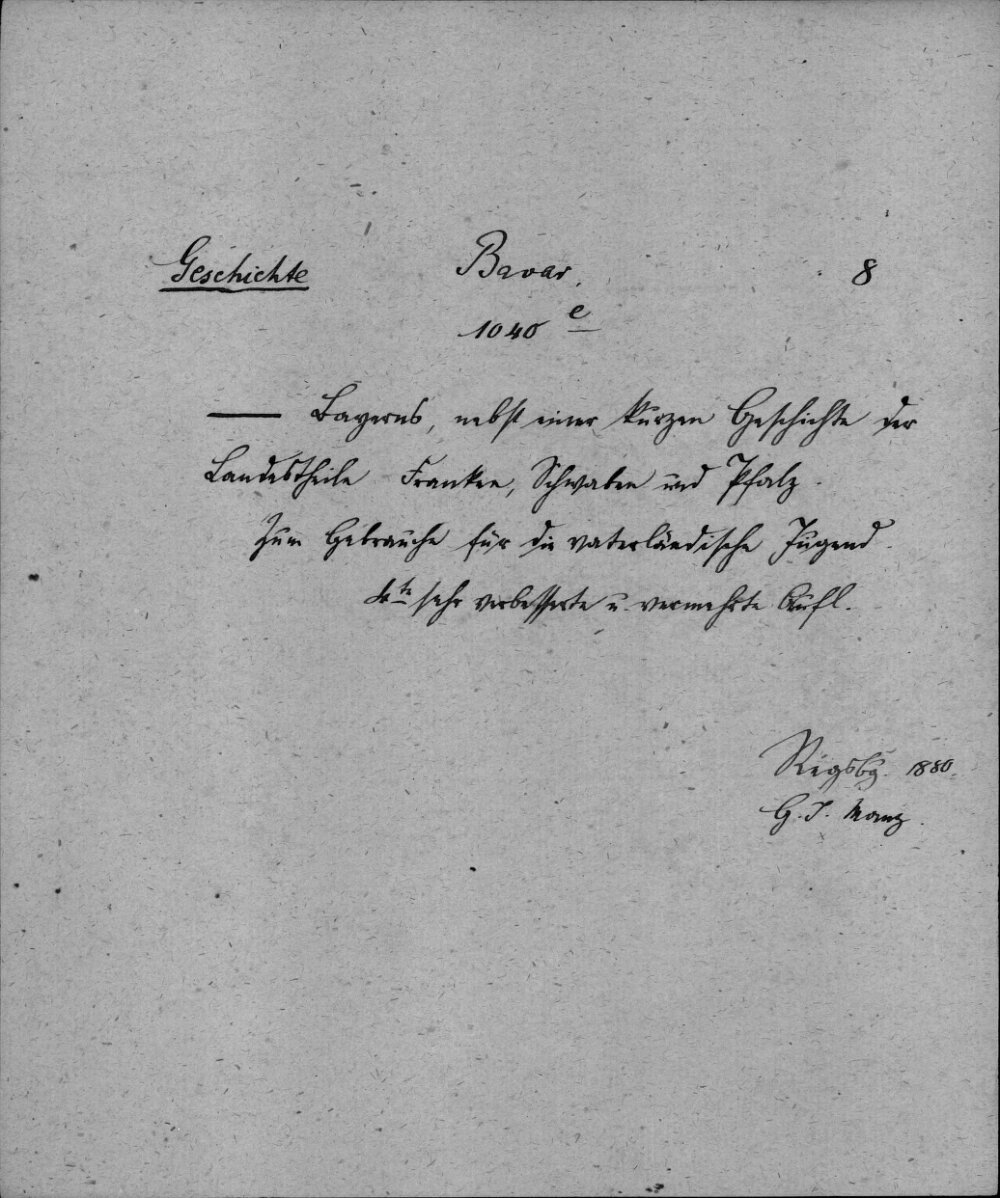 Geschichte Bavar. 8
1040 e
— Bayerns, nebst einer kurzen Geschichte der
Landestheile Franken, Schwaben und Pfalz.
Zum Gebrauche für die vaterländische Jugend.
4te sehr verbesserte u. vermehrte Aufl.
Rgsbg. 1880.
G. J. Manz.